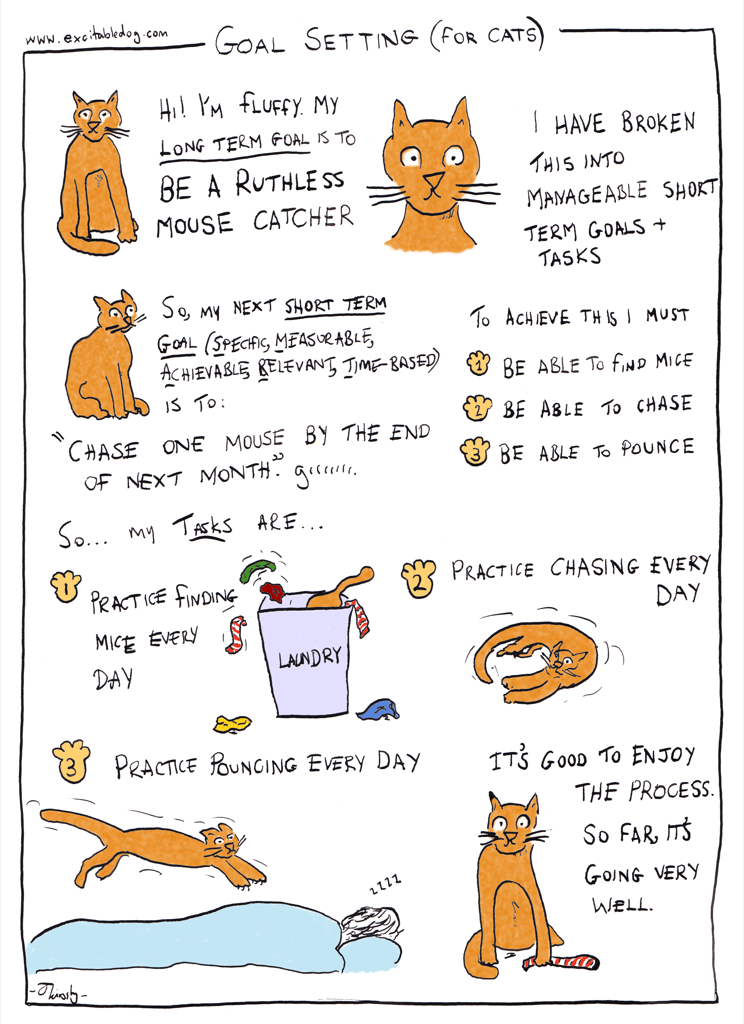 www.excitabledog.com
GOAL SETTING (FOR CATS)
HI! I'M FLUFFY. MY
LONG TERM GOAL IS TO
BE A RUTHLESS
MOUSE CATCHER
I HAVE BROKEN
THIS INTO
MANAGEABLE SHORT
TERM GOALS +
TASKS
SO, MY NEXT SHORT TERM
GOAL (SPECIFIC, MEASURABLE,
ACHIEVABLE, RELEVANT, TIME-BASED)
IS TO:
"CHASE ONE MOUSE BY THE END
OF NEXT MONTH." grrrrrrr.
TO ACHIEVE THIS I MUST
1 BE ABLE TO FIND MICE
2 BE ABLE TO CHASE
3 BE ABLE TO POUNCE
SO... MY TASKS ARE...
1 PRACTICE FINDING
MICE EVERY
DAY
LAUNDRY
2 PRACTICE CHASING EVERY
DAY
3 PRACTICE POUNCING EVERY DAY
zzzz
IT'S GOOD TO ENJOY
THE PROCESS.
SO FAR, IT'S
GOING VERY
WELL.